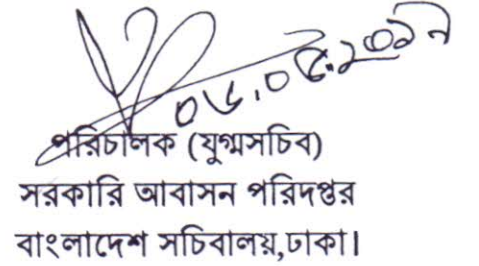 ০৬.০৫.২০১৭
পরিচালক (যুগ্মসচিব)
সরকারি আবাসন পরিদপ্তর
বাংলাদেশ সচিবালয়,ঢাকা।